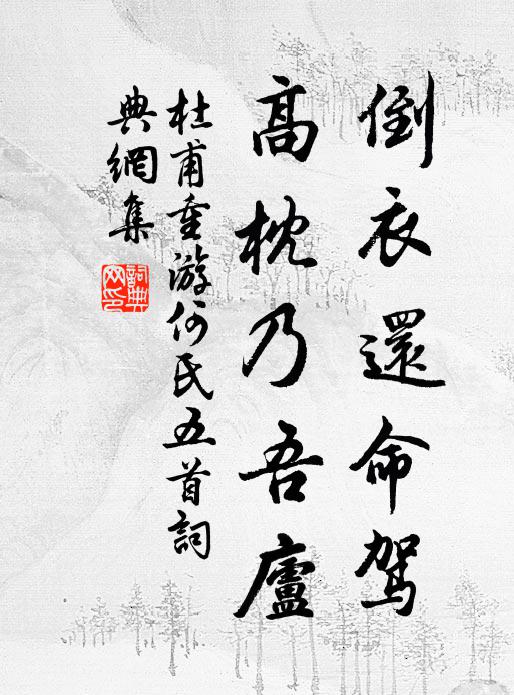 倒衣還命駕
高枕乃吾廬
杜甫重游何氏五首詞
典網集
詞典
网印